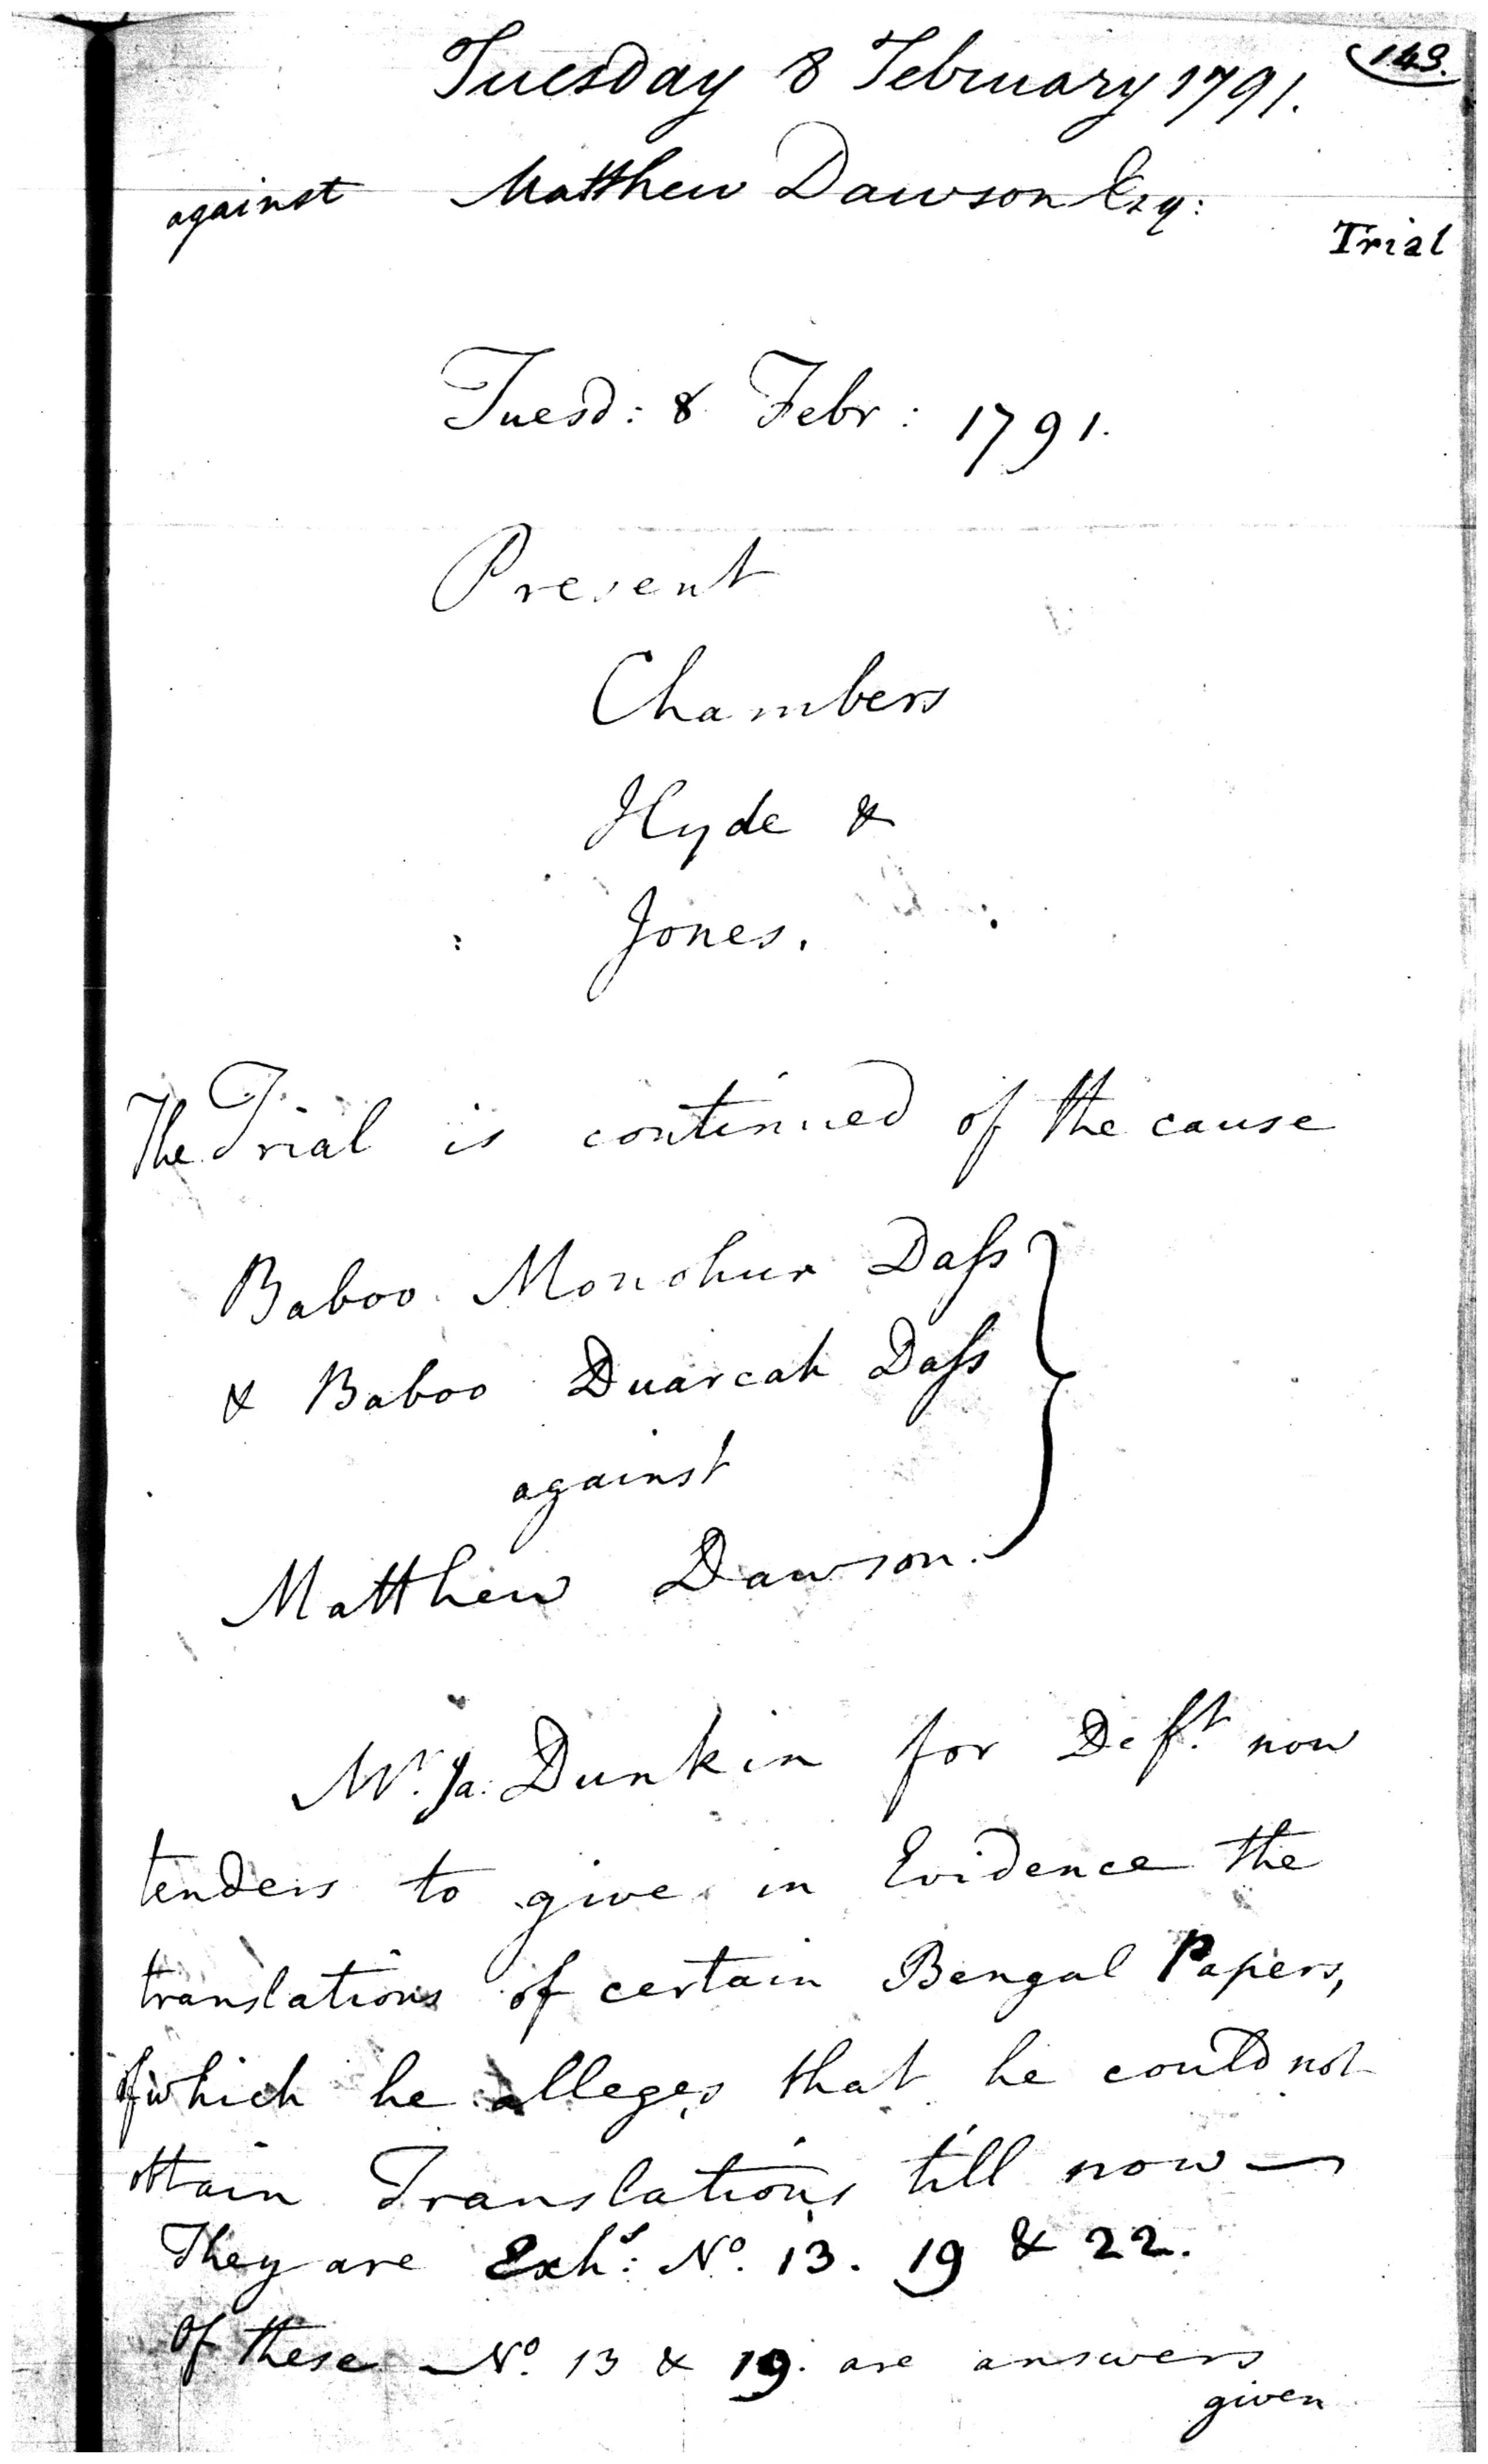 Tuesday 8 February 1791.
143.
against Matthew Dawson Esq:
Trial
Tuesd: 8 Febr: 1791.
Present
Chambers
Hyde &
Jones.
The Trial is continued of the cause
Baboo Monohur Daſs
& Baboo Duarcah Daſs
against
Matthew Dawson.
Mr. Ja: Dunkin for Deft. now
tenders to give in Evidence the
translations of certain Bengal Papers,
of which he alleges that he could not
obtain Translations till now —
They are Exhs: No. 13. 19 & 22.
Of these No. 13 & 19. are answers
given